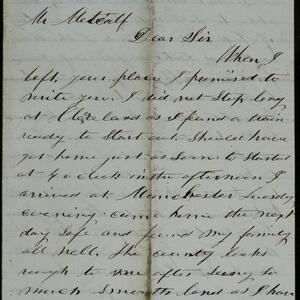 Mr Metcalf
Dear Sir
When I
left your place I promised to
write you. I did not stop long
at Cleveland as I found a train
ready to start out. Should have
got home just as soon to started
at 4 o clock in the afternoon I
arrived at Manchester Tuesday
evening came home the next
day safe and found my family
all well. The county looks
rough to me after seeing so
much smooth land as I have